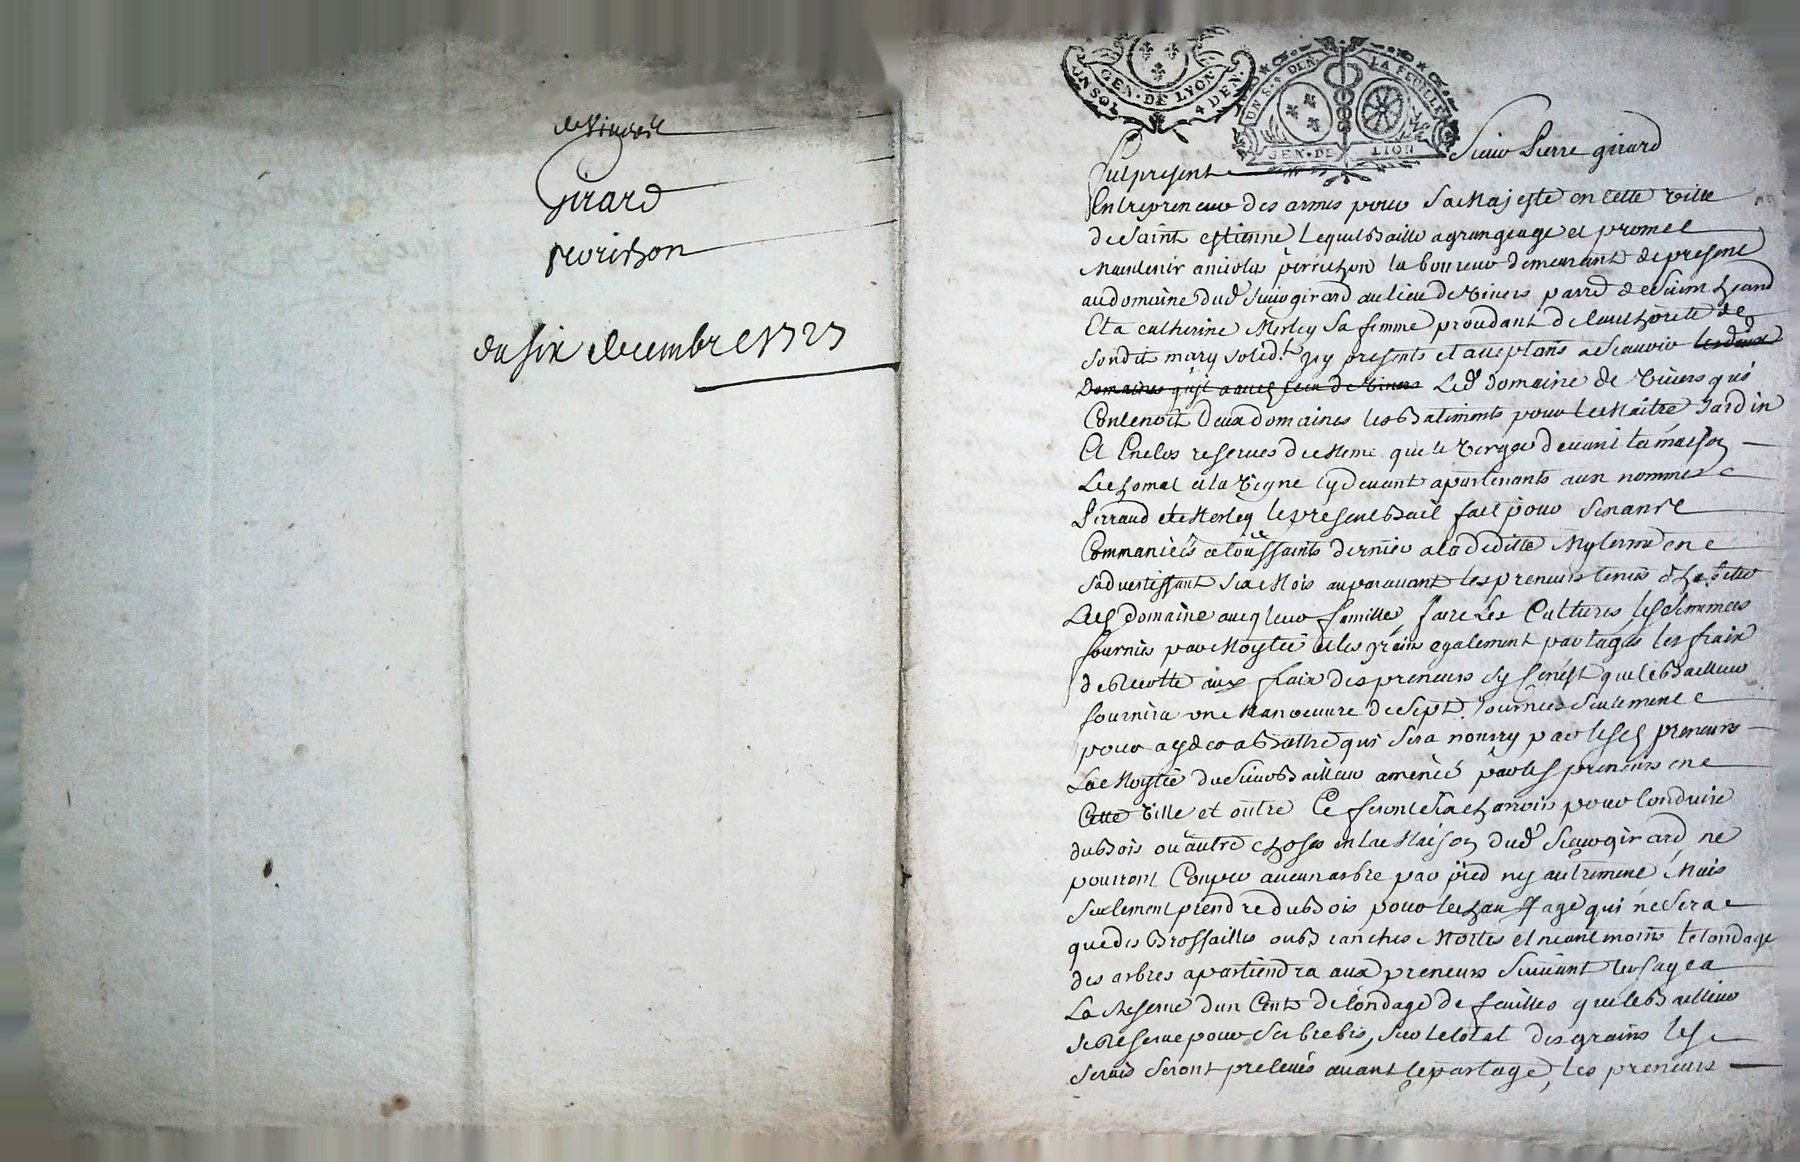 Girard
du six decembre 1727
GEN. DE LYON
4 DEN.
UN S. 4 DEN. LA FEUILLE
GEN. DE LION
Fut present Sieur Pierre girard
Entrepreneur des armes pour Sa Majesté en cette ville
de Saint estienne Lequel baille a grangeage et promet
Maintenir a laboureur demeurant de present
au domaine dud Sieur girard au lieu de Viviers parr de Saint
Et a catherine Merley sa femme de lauthorité de
Sondit mary solid.t icy presents et acceptans a Scauoir les deux
Domaines Led domaine de Viviers qui
Contenoit deux domaines les Batiments pour le Maitre Jardin
Et Enclos reserves de Meme que le Verger devant la maison
et la Vigne cydevant apartenants aux nommes
Pirraud et Merley le present Bail fait pour Sinanné
Commancés a toussaints dernier
Sadvertissant Six Mois auparavant les preneurs tenus d'habiter
Led domaine avec leur famille, faire Les Cultures les Semences
fournies par Moytié et les grains egalement partagés les fraix
de Recolte aux fraix des preneurs sy se n'est que le Bailleur
fournira une Manoeuvre de Sept Journées Seulement
pour ayder a Battre qui Sera nourry par lesd preneurs
La Moytié du Sieur Bailleur amenée par les preneurs en
Cette Ville et outre Ce feront Six charrois pour Conduire
du Bois ou autre choses en la Maison dud Sieur girard ne
pourront Couper aucun arbre par pied ny autrement Mais
Seulement prendre du Bois pour le chauffage qui ne Sera
que des Brossailles ou Branches Mortes et neantmoins le londage
des arbres apartiendra aux preneurs Suivant lusage a
La Reserve d'un Cent de londage de feuilles que le Bailleur
se Reserve pour Ses brebis, Sur le total des grains les
Serais Seront prelevés avant le partage, les preneurs